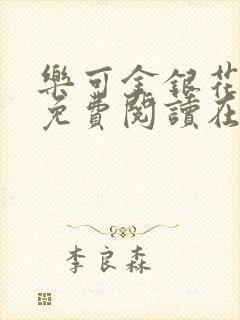 樂可金銀花
免費閱讀在
李良森